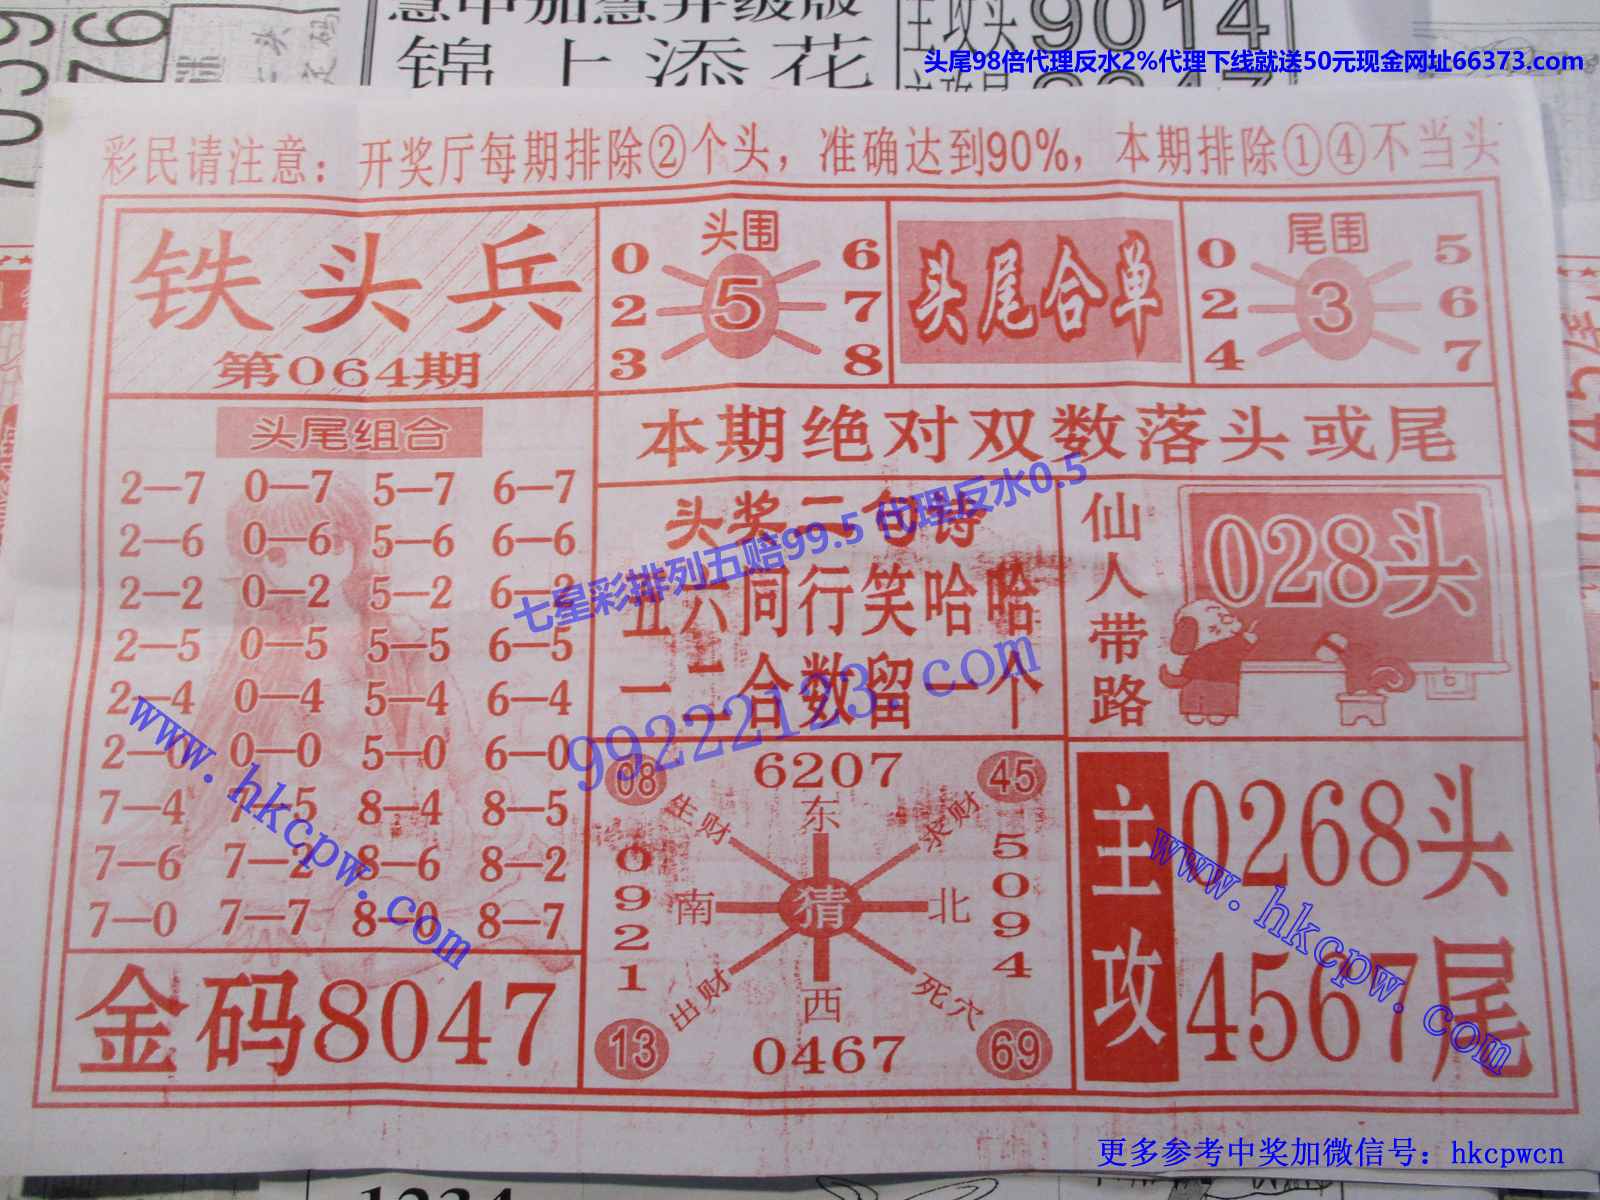 慧中加慧升级版
锦上添花
主攻头9014
头尾98倍代理反水2%代理下线就送50元现金网址66373.com
彩民请注意：开奖厅每期排除②个头，准确达到90%，本期排除①④不当头
铁头兵
第064期
头围
0 6
2 5 7
3 8
头尾合单
尾围
0 5
2 3 6
4 7
本期绝对双数落头或尾
头尾组合
2—7 0—7 5—7 6—7
2—6 0—6 5—6 6—6
2—2 0—2 5—2 6—2
2—5 0—5 5—5 6—5
2—4 0—4 5—4 6—4
2—0 0—0 5—0 6—0
7—4 7—5 8—4 8—5
7—6 7—2 8—6 8—2
7—0 7—7 8—0 8—7
金码8047
头奖二句诗
五六同行笑哈哈
一二合数留一个
仙人带路
028头
08 6207 45
生财 东 求财
0921 南 猜 北 5094
出财 西 死穴
13 0467 69
主攻
0268头
4567尾
七星彩排列五赔99.5 代理反水0.5
99222123.com
www.hkcpw.com
www.hkcpw.com
更多参考中奖加微信号：hkcpwcn
1234